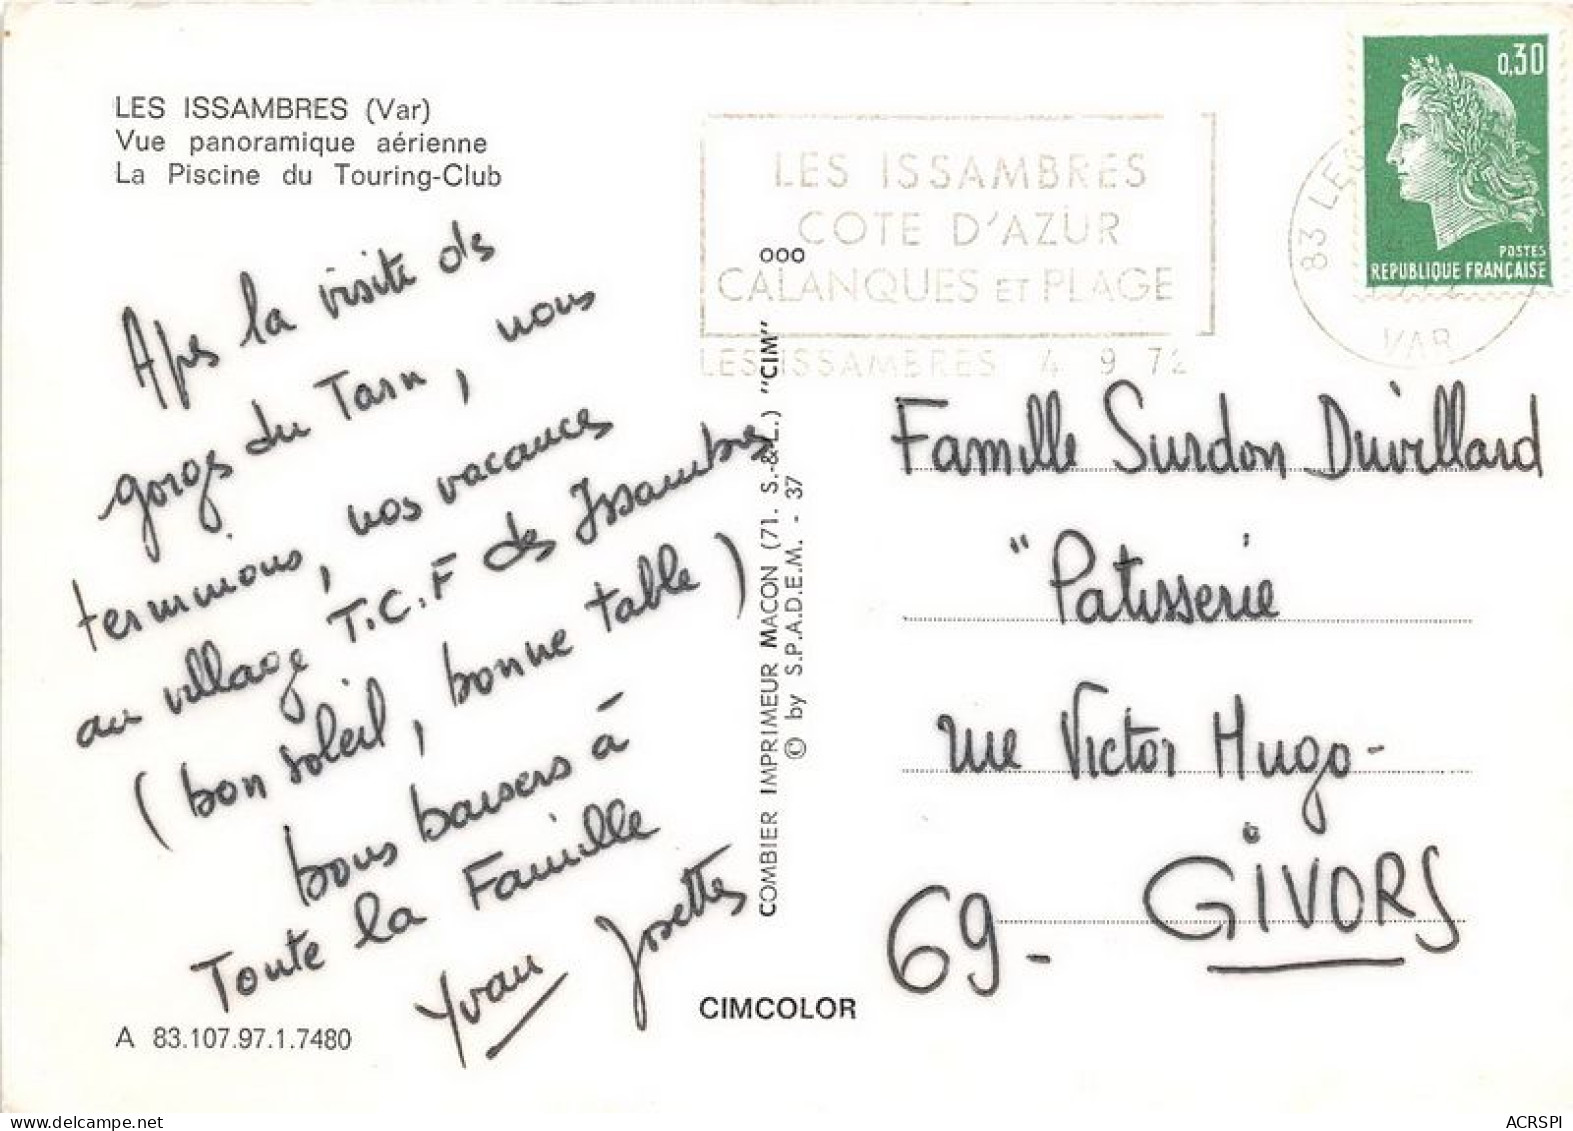 LES ISSAMBRES (Var)
Vue panoramique aérienne
La Piscine du Touring-Club
Aps la visite des
gorges du Tarn, nous
terminons, nos vacances
au village T.C.F des Issambres
(bon soleil, bonne table)
bons baisers à
Toute la Famille
Yvan Josette
A 83.107.97.1.7480
LES ISSAMBRES
COTE D'AZUR
CALANQUES ET PLAGE
LES ISSAMBRES 4 9 72
ooo
COMBIER IMPRIMEUR MACON (71. S.-&-L.) "CIM"
© by S.P.A.D.E.M. - 37
CIMCOLOR
0,30
POSTES
REPUBLIQUE FRANÇAISE
83 LES
VAR
Famille Surdon Duvillard
"Patisserie
rue Victor Hugo-
69- GIVORS
ACRSPI